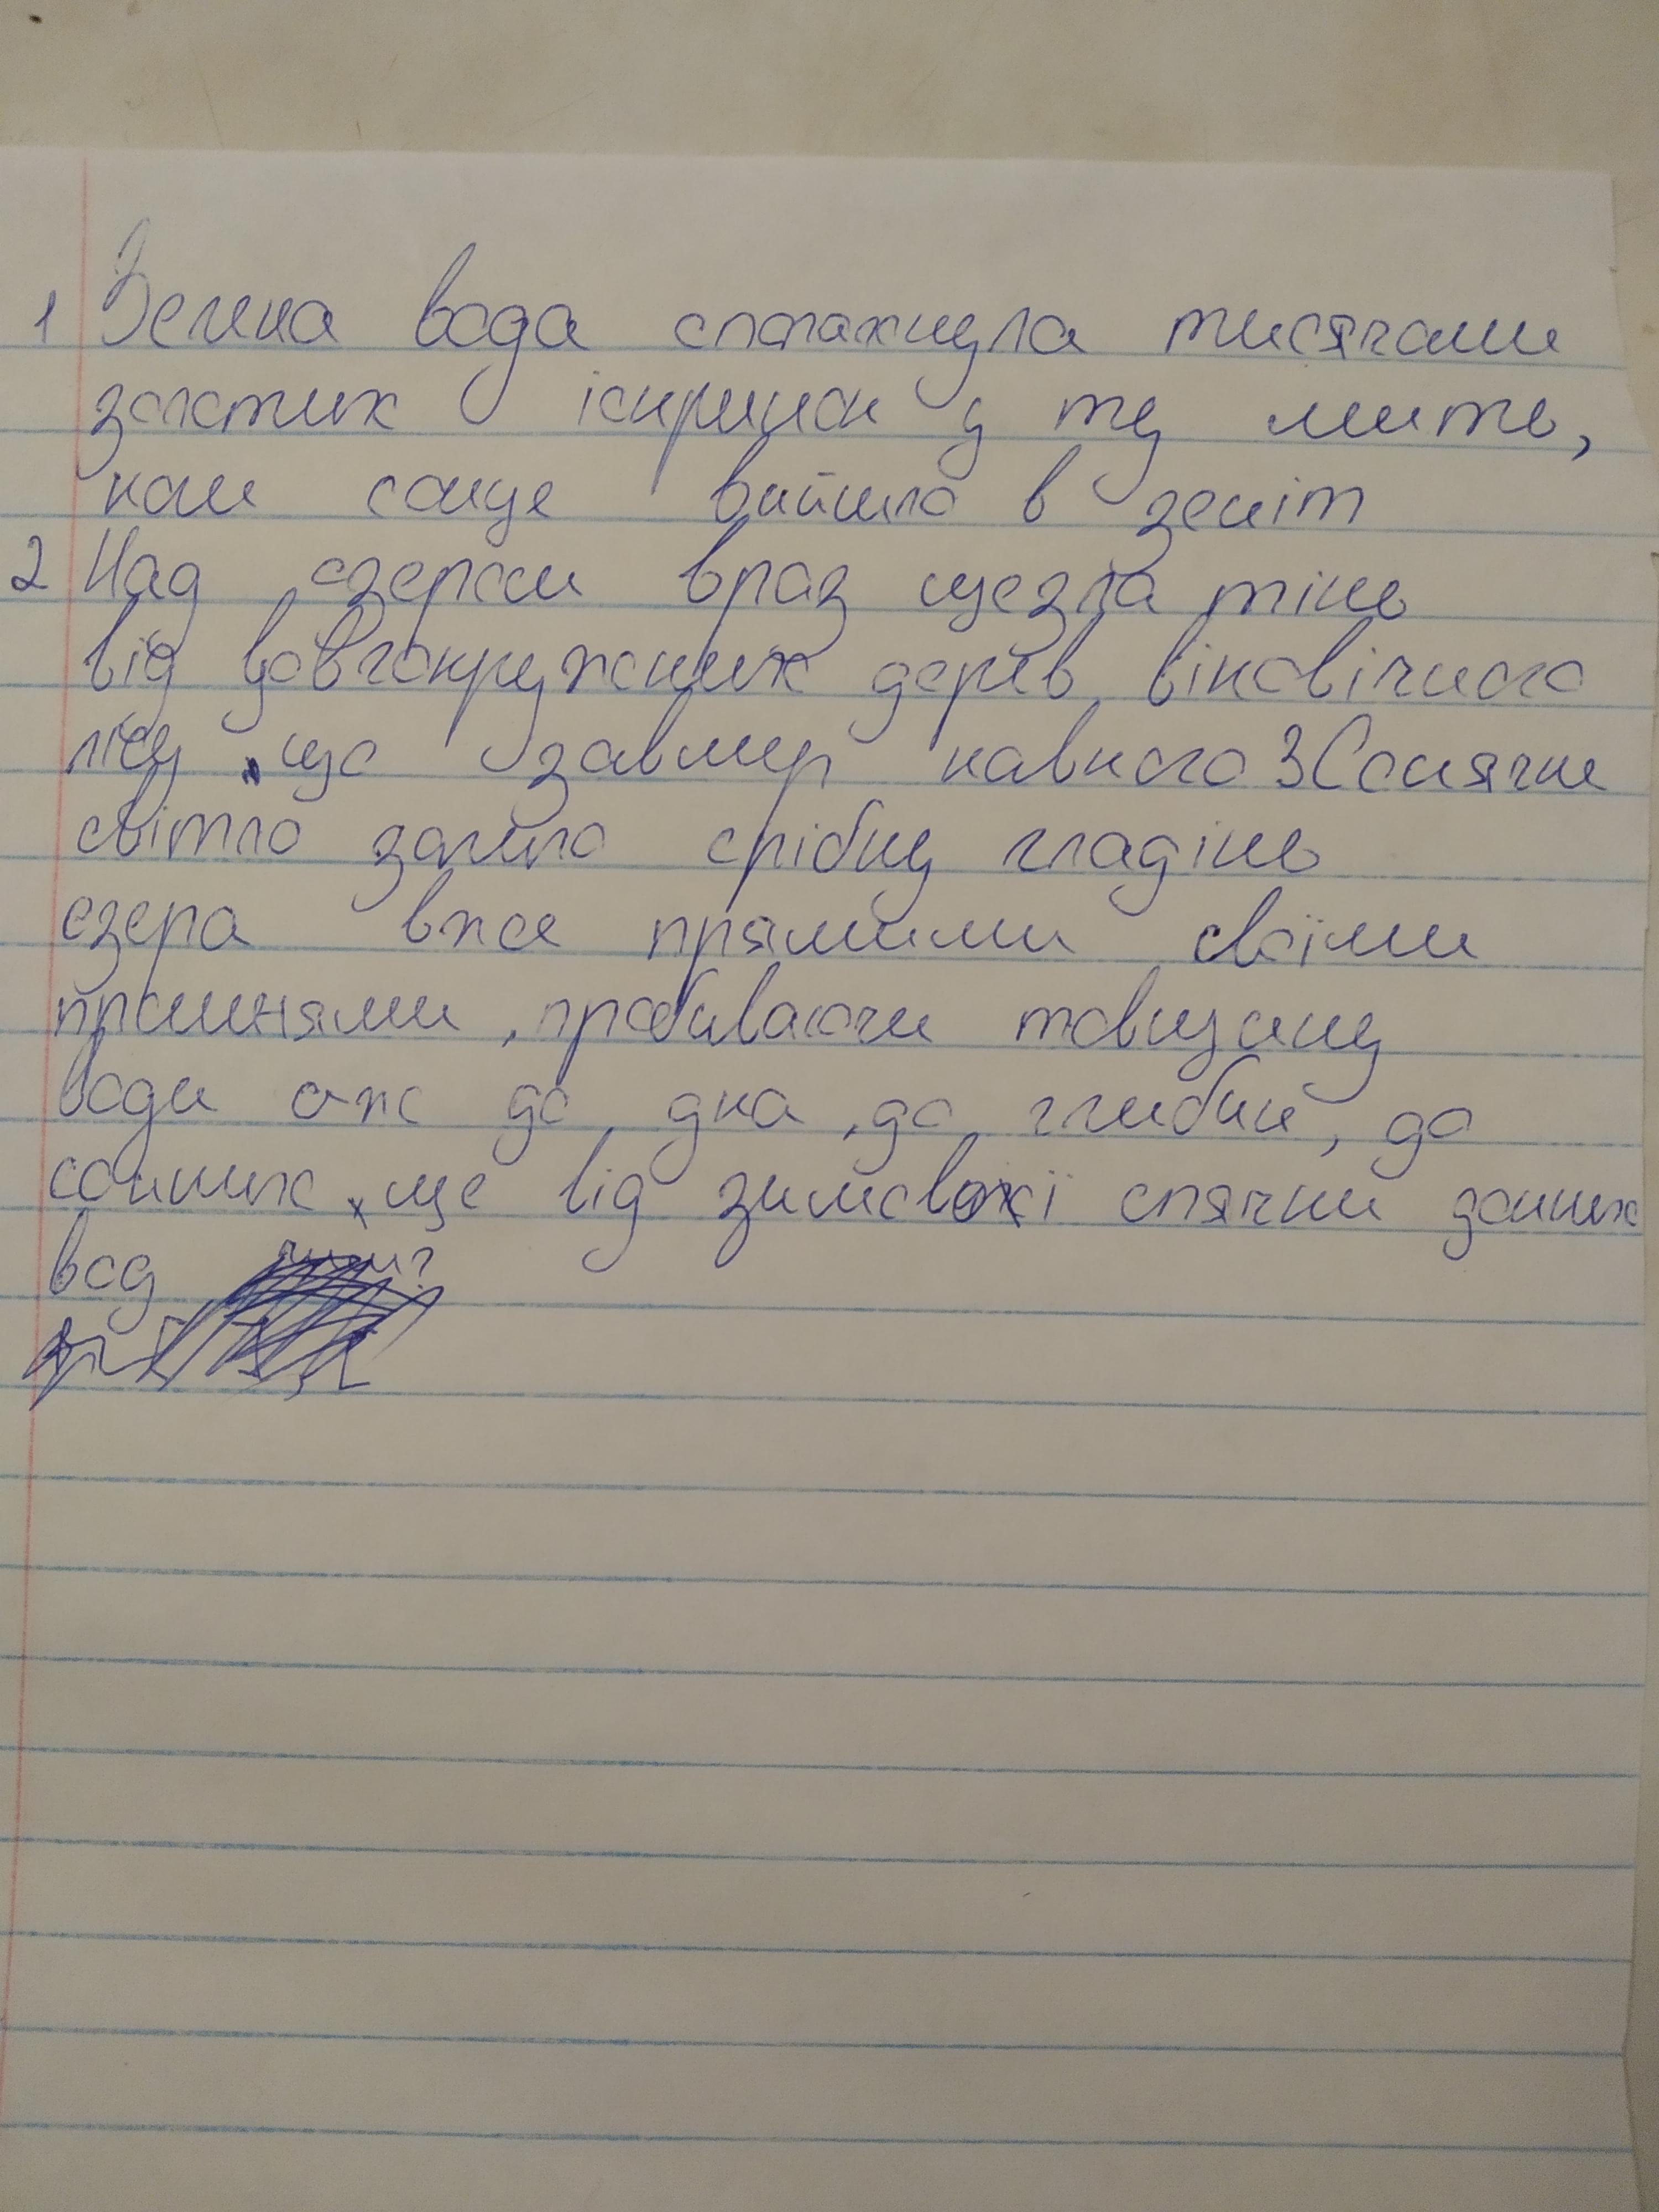 1 Зелена вода спалахнула тисячами
золотих іскринок у ту мить,
коли сонце вийшло в зеніт
2 Над озером враз щезла тінь
від довгокружених дерев віковічного
лісу, що завмер навколо 3 Сонячне
світло залило срібну гладінь
озера вже прямими своїми
променями, пробиваючи товщину
води аж до дна, до глибин, до
сонних, ще від зимової сплячки донних
вод